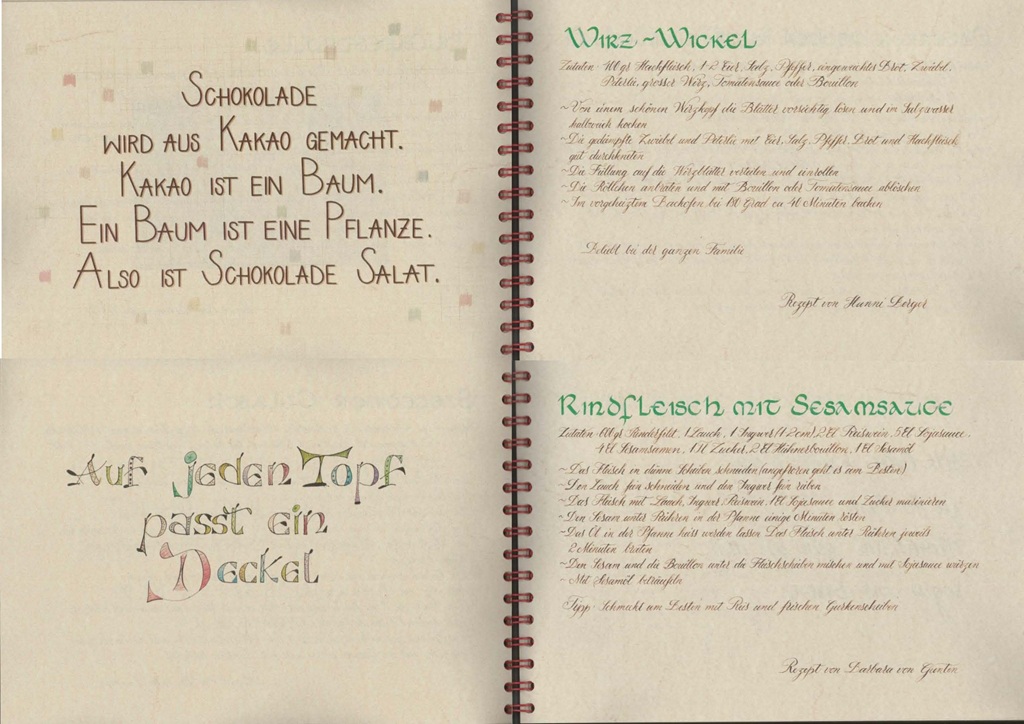 SCHOKOLADE
WIRD AUS KAKAO GEMACHT.
KAKAO IST EIN BAUM.
EIN BAUM IST EINE PFLANZE.
ALSO IST SCHOKOLADE SALAT.
WIRZ-WICKEL
Zutaten: 400 gr Hackfleisch, 1-2 Eier, Salz, Pfeffer, eingeweichtes Brot, Zwiebel,
Peterli, grosser Wirz, Tomatensauce oder Bouillon
~ Von einem schönen Wirzkopf die Blätter vorsichtig lösen und in Salzwasser
halbweich kochen
~ Die gedämpfte Zwiebel und Peterli mit Eier, Salz, Pfeffer, Brot und Hackfleisch
gut durchkneten
~ Die Füllung auf die Wirzblätter verteilen und einrollen
~ Die Röllchen anbraten und mit Bouillon oder Tomatensauce ablöschen
~ Im vorgeheizten Backofen bei 180 Grad ca 40 Minuten backen
Beliebt bei der ganzen Familie
Rezept von Hanni Berger
Auf jeden Topf
passt ein
Deckel
Rindfleisch mit Sesamsauce
Zutaten: 600 gr Rindsfilet, 1 Lauch, 1 Ingwer (1-2 cm), 2 El Reiswein, 5 El Sojasauce,
4 El Sesamsamen, 1 Kl Zucker, 2 El Hühnerbouillon, 1 El Sesamöl
~ Das Fleisch in dünne Scheiben schneiden (angefroren geht es am Besten)
~ Den Lauch fein schneiden und den Ingwer fein reiben
~ Das Fleisch mit Lauch, Ingwer, Reiswein, 1 El Sojasauce und Zucker marinieren
~ Den Sesam unter Rühren in der Pfanne einige Minuten rösten
~ Das Öl in der Pfanne heiss werden lassen Das Fleisch unter Rühren jeweils
2 Minuten braten
~ Den Sesam und die Bouillon unter die Fleischscheiben mischen und mit Sojasauce würzen
~ Mit Sesamöl beträufeln
Tipp: Schmeckt am Besten mit Reis und frischen Gurkenscheiben
Rezept von Barbara von Gunten